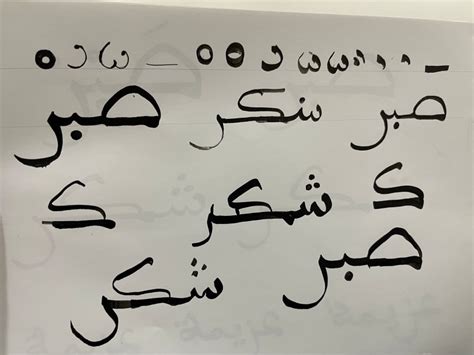 صبر شكر صبر
ك شكر ك
صبر
شكر